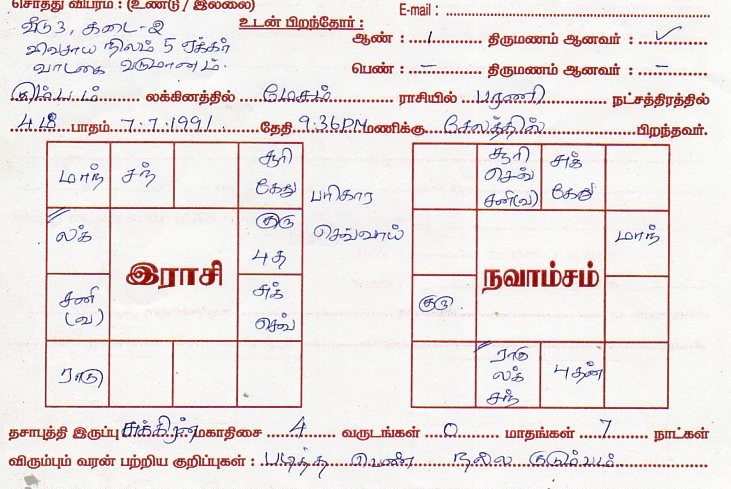 சொத்து விபரம் : (உண்டு / இல்லை)
வீடு 3, கடை-2
விவசாய நிலம் 5 ஏக்கர்
வாடகை வருமானம்.
E-mail :
உடன் பிறந்தோர் :
ஆண் : 1 திருமணம் ஆனவர் : ✓
பெண் : – திருமணம் ஆனவர் : –
கும்பம் லக்கினத்தில் மேசம் ராசியில் பரணி நட்சத்திரத்தில்
4ம் பாதம் 7.7.1991 தேதி 9.36PM மணிக்கு சேலத்தில் பிறந்தவர்.
மாந் சந் சூரி கேது
லக் குரு புத
சனி (வ) சுக் செவ்
ராகு
இராசி
பரிகார
செவ்வாய்
சூரி செவ் சனி(வ) சுக் கேது
மாந்
குரு
ராகு லக் சந் புதன்
நவாம்சம்
தசாபுத்தி இருப்பு சுக்கிரன் மகாதிசை 4 வருடங்கள் 0 மாதங்கள் 7 நாட்கள்
விரும்பும் வரன் பற்றிய குறிப்புகள் : படித்த பெண் நல்ல குடும்பம்